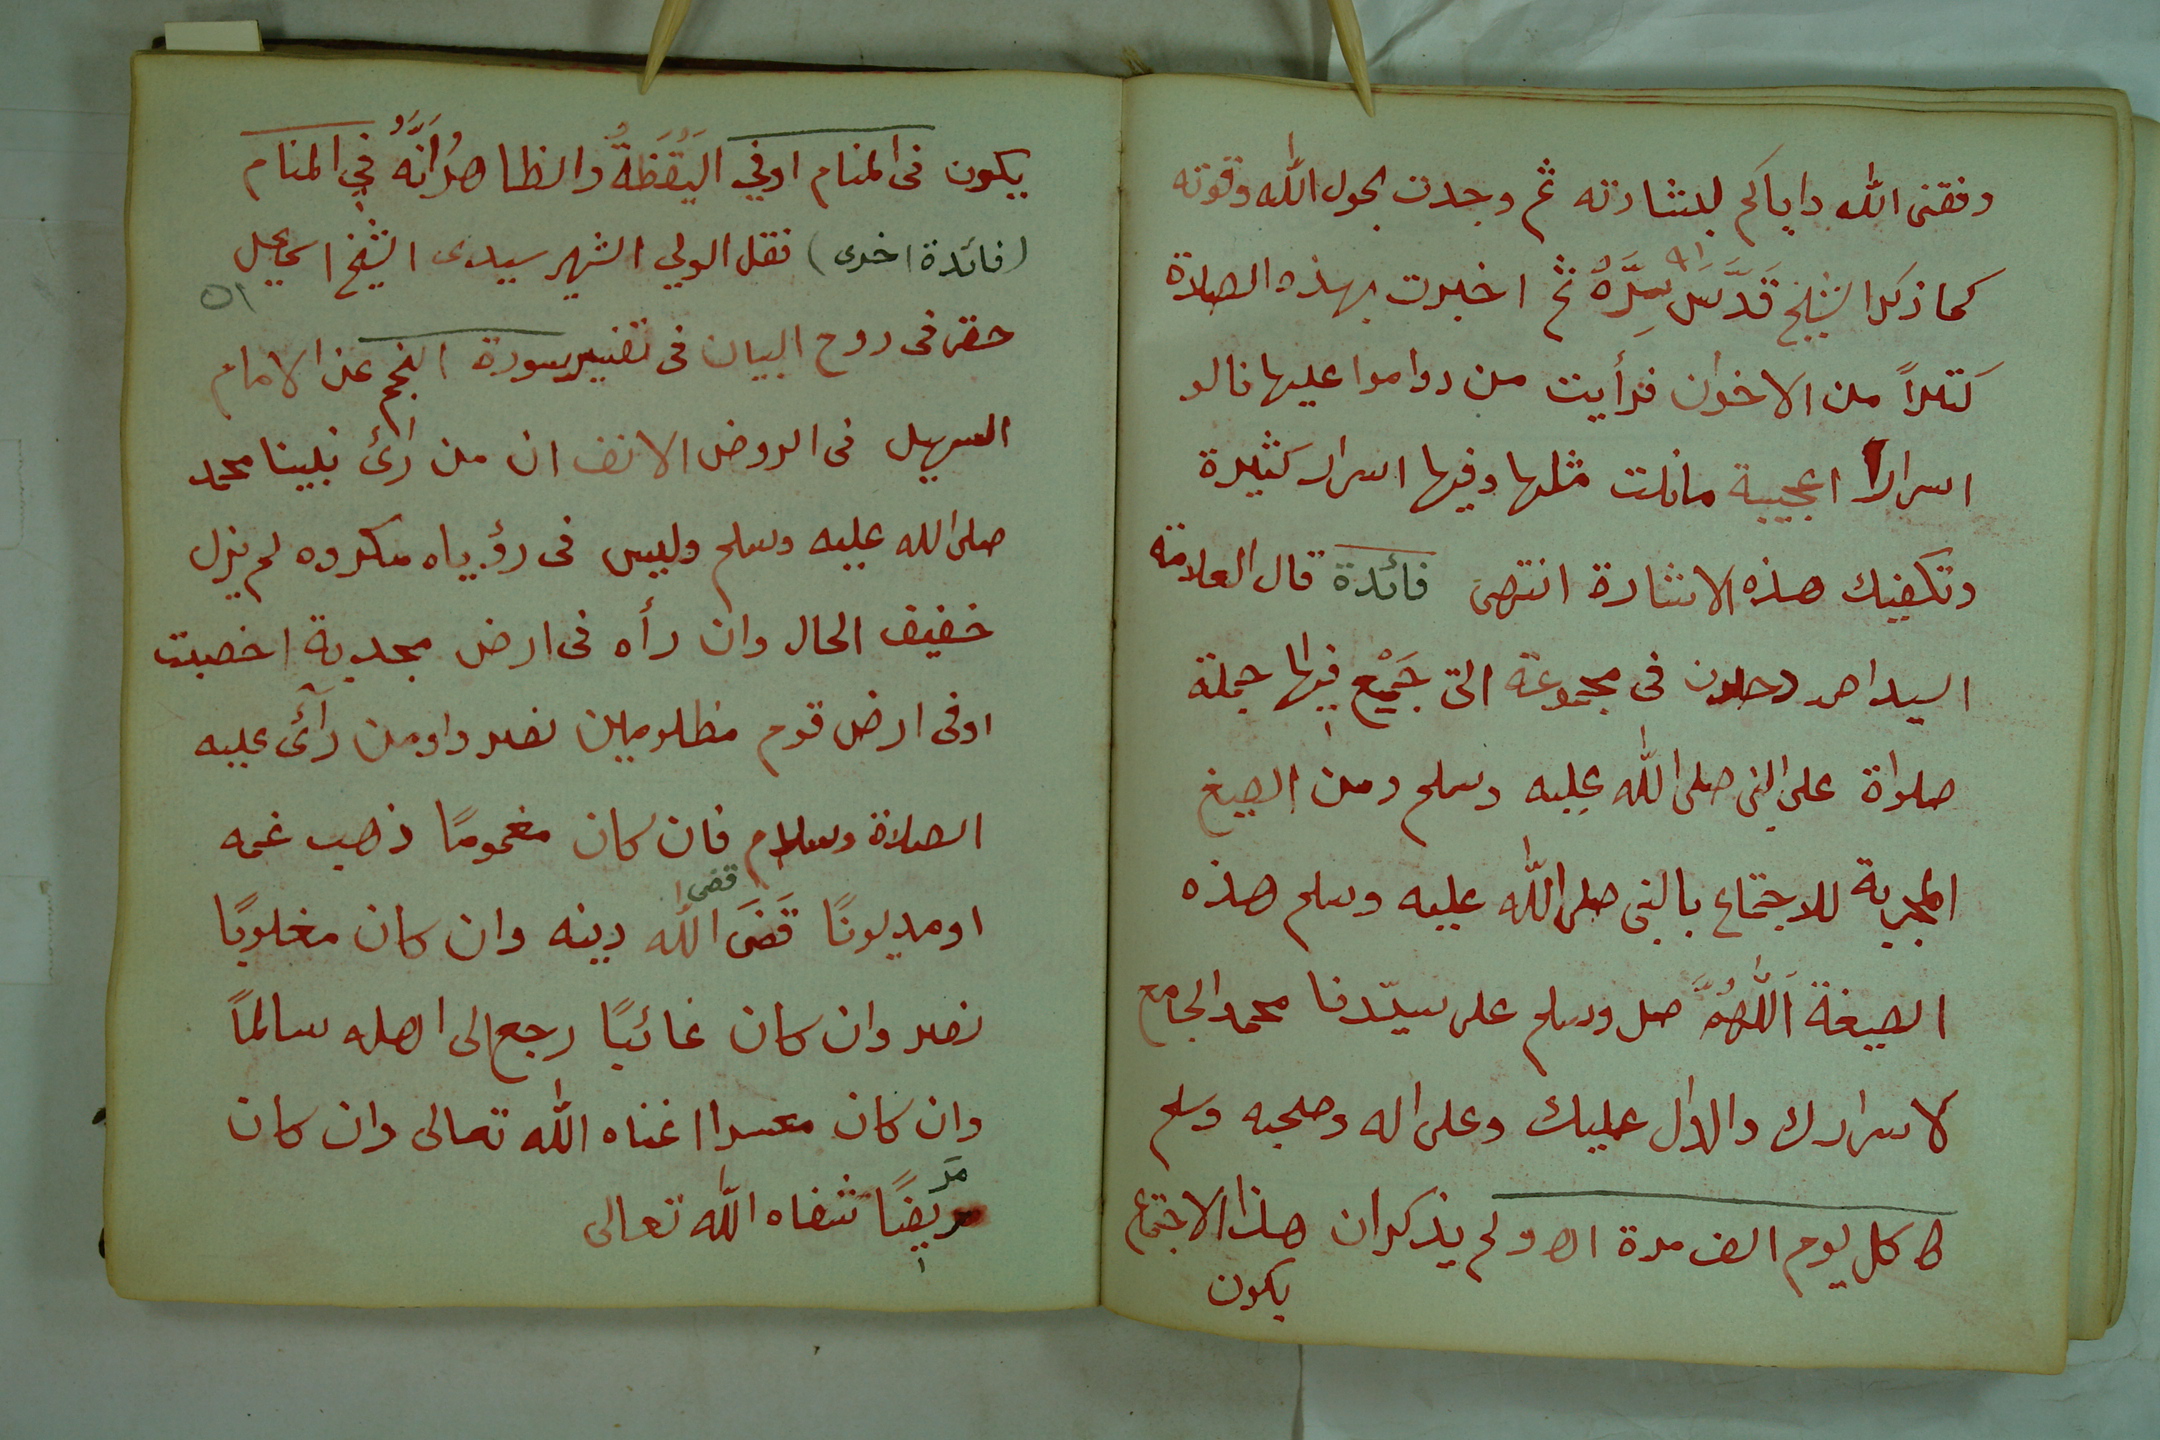 وفقنى الله واياكم لبشارته ثم وجدت بحول الله وقوته
كما ذكر الشيخ قَدَّسَ سِرَّهُ ثم اخبرت بهذه الصلاة
كثيراً من الاخوان فرأيت من دواموا عليها نالو
اسراراً اعجيبة مانلت مثلها وفيها اسرار كثيرة
وتكفيك هذه الاشارة انتهى فائدة قال العلامة
السيد احمد دحلون فى مجموعة التى جَمْع فيها جملة
صلواة على النبى صلى الله عليه وسلم ومن الصيغ
المجربة للاجتماع بالنبى صلى الله عليه وسلم هذه
الصيغة اَللّٰهُمَّ صل وسلم على سيّدنا محمد الجامع
لاسرارك والدال عليك وعلى اله وصحبه وسلم
كل يوم الف مرة اه ولم يذكر ان هذا الاجتماع
يكون
يكون فى المنام اوفي اليَقَظَةُ والظاهرُ اَنَّهُ في المنام
(فائدة اخرى) نقل الولي الشهر سيدى الشيخ اسماعيل
٥١
حقى فى روح البيان فى تفسير سورة النجم عن الامام
السهيل فى الروض الانف ان من رائ نبينا محمد
صلى الله عليه وسلم وليس فى رؤياه مكروه لم يزل
خفيف الحال وان رأه فى ارض مجدبة اخصبت
اوفى ارض قوم مظلومين نصر واومن رآئ عليه
الصلاة وسلام فان كان مغموماً ذهب غمه
قضى
اومديونًا قَضَى الله دينه وان كان مغلوبًا
نصر وان كان غائبًا رجع الى اهله سالماً
وان كان معسرا اغناه الله تعالى وان كان
مر
مريضًا شفاه الله تعالى